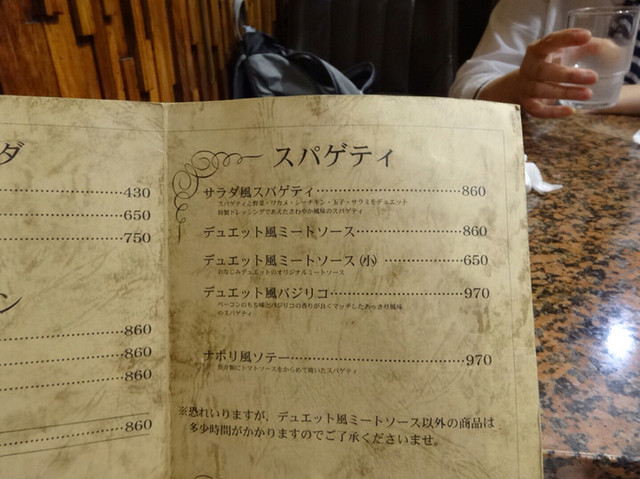 ダ
430
650
750
ン
860
860
860
860
スパゲティ
サラダ風スパゲティ 860
スパゲティと野菜・ワカメ・シーチキン・玉子・サラミをデュエット
特製ドレッシングであえたさわやか風味のスパゲティ
デュエット風ミートソース 860
デュエット風ミートソース(小) 650
おなじみデュエットのオリジナルミートソース
デュエット風バジリコ 970
ベーコンのもち味とバジリコの香りが良くマッチしたあっさり風味
のスパゲティ
ナポリ風ソテー 970
魚介類にトマトソースをからめて焼いたスパゲティ
※恐れいりますが、デュエット風ミートソース以外の商品は
多少時間がかかりますのでご了承くださいませ。